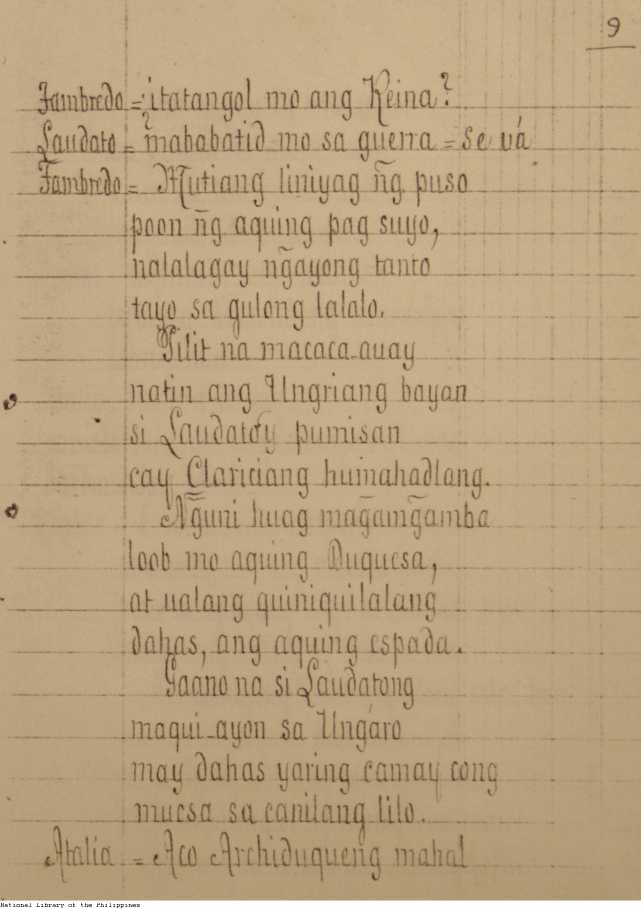 9
Fambredo = ¿itatangol mo ang Reina?
Laudato = mababatid mo sa guerra = Se vá
Fambredo = Mutiang liniyag ñg puso
poon ñg aquing pag suyo,
nalalagay n̄gayong tanto
tayo sa gulong lalalo.
Pilit na macaca-auay
natin ang Ungriang bayan
si Laudato'y pumisan
cay Clariciang humahadlang.
N̄guni huag mag̃amg̃amba
loob mo aquing Duquesa,
at ualang quiniquilalang
dahas, ang aquing espada.
Gaano na si Laudatong
maqui-ayon sa Ungaro
may dahas yaring camay cong
mucsa sa canilang lilo.
Atalia = Aco Archiduqueng mahal
National Library of the Philippines